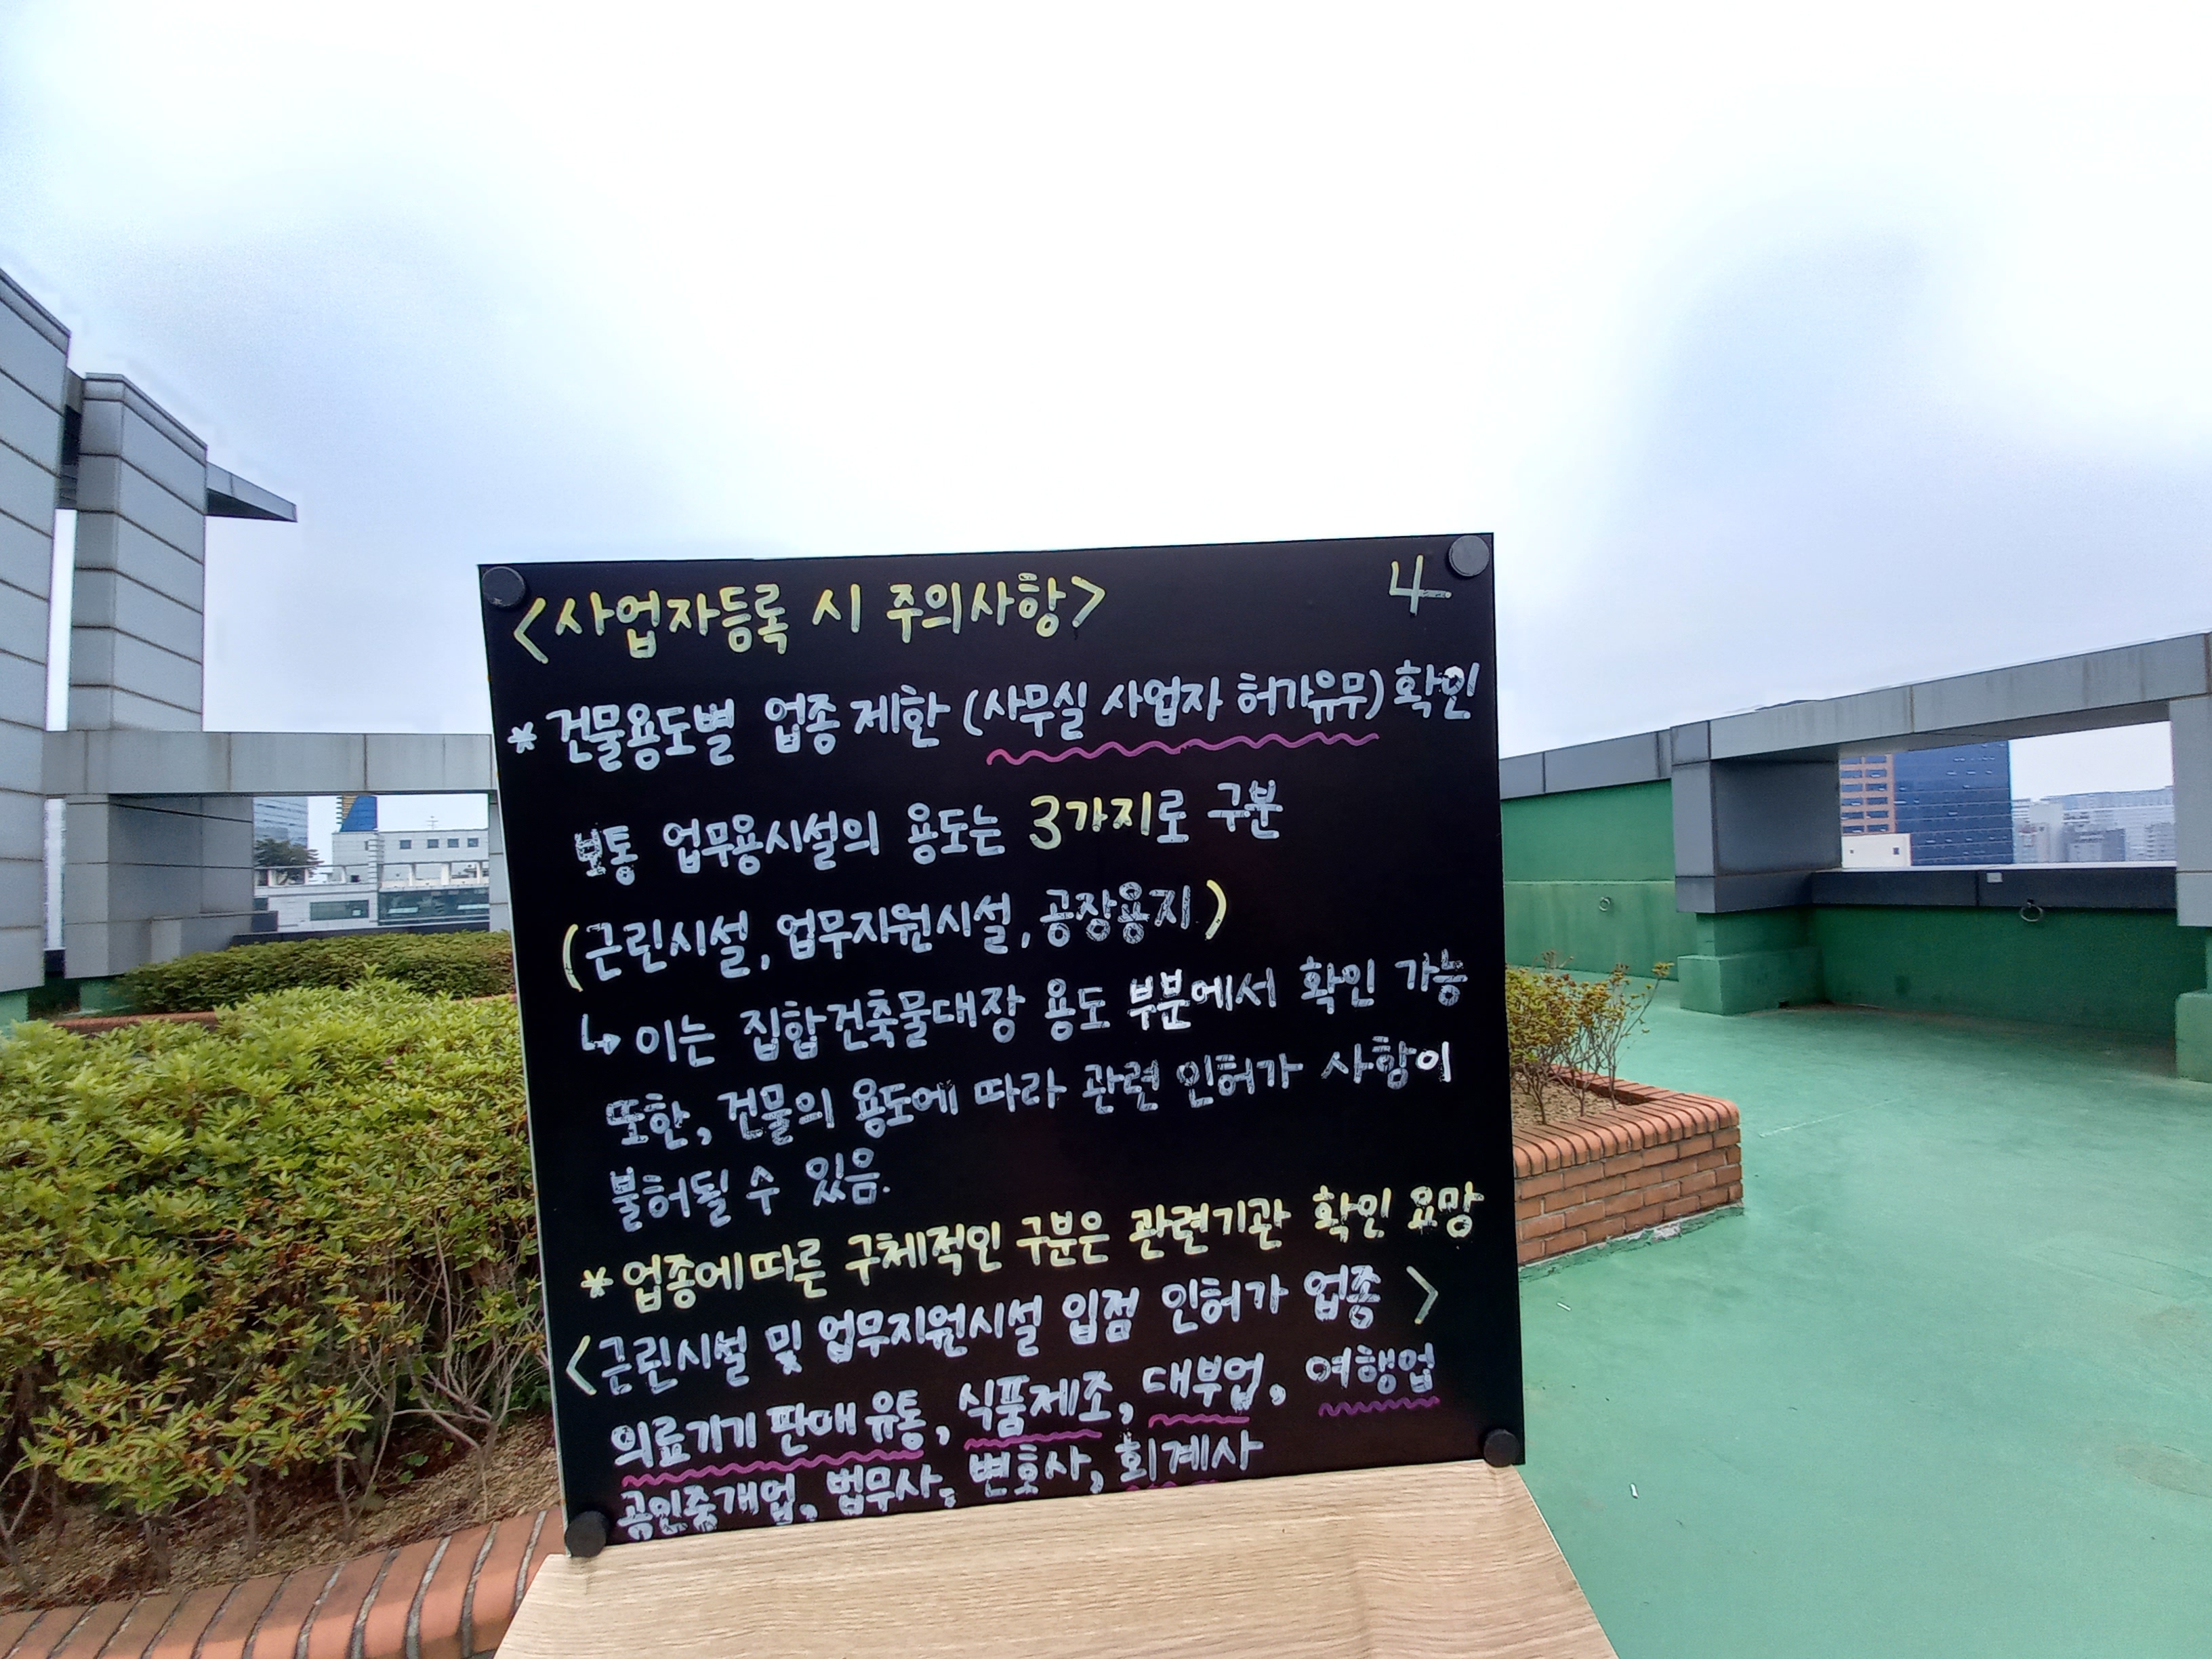 <사업자등록 시 주의사항> 4
* 건물용도별 업종제한 (사무실 사업자 허가유무) 확인
보통 업무용시설의 용도는 3가지로 구분
(근린시설, 업무지원시설, 공장용지)
↳ 이는 집합건축물대장 용도 부분에서 확인 가능
또한, 건물의 용도에 따라 관련 인허가 사항이
불허될 수 있음.
* 업종에 따른 구체적인 구분은 관련기관 확인 요망
<근린시설 및 업무지원시설 입점 인허가 업종>
의료기기 판매 유통, 식품제조, 대부업, 여행업
공인중개업, 법무사, 변호사, 회계사